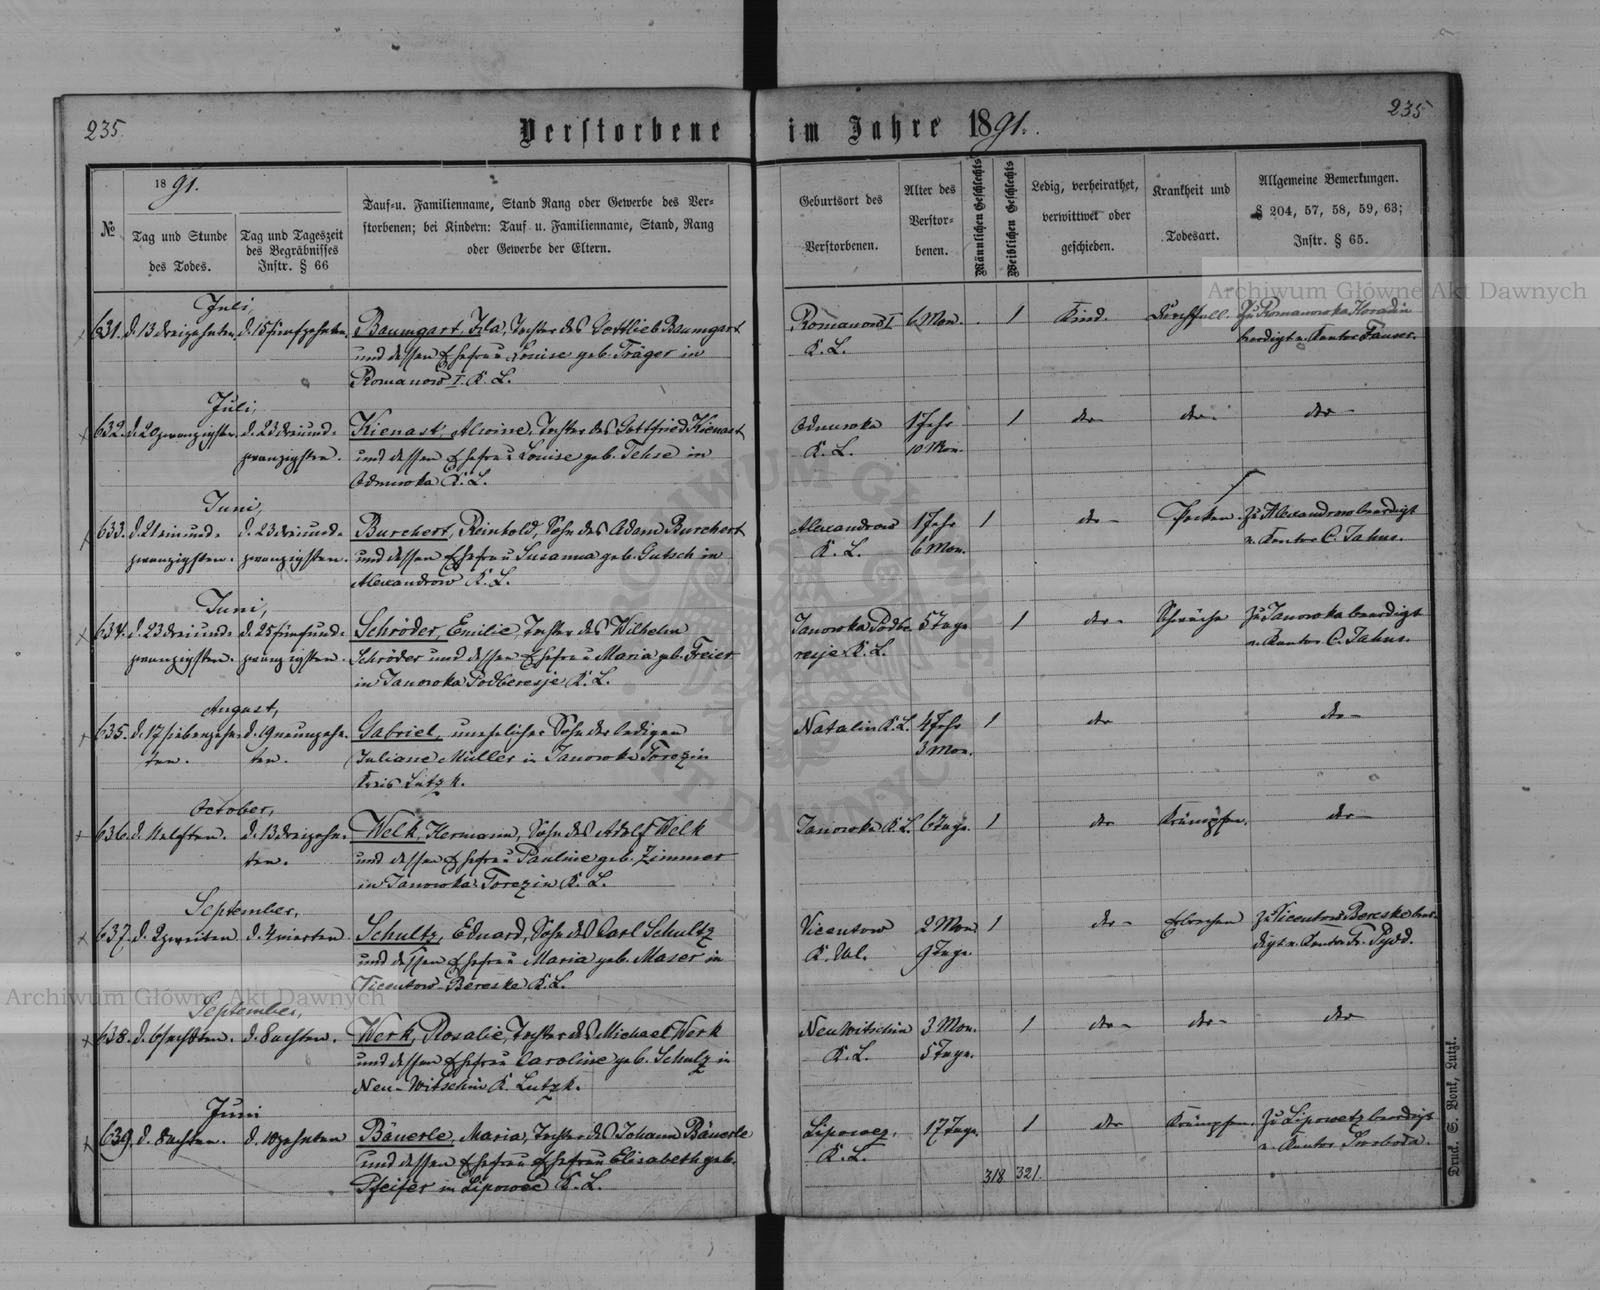 235.
Verstorbene im Jahre 1891.
235
№
1891.
Tag und Stunde
des Todes.
Tag und Tageszeit
des Begräbnisses
Instr. § 66
Tauf- u. Familienname, Stand Rang oder Gewerbe des Ver-
storbenen; bei Kindern: Tauf- u. Familienname, Stand, Rang
oder Gewerbe der Eltern.
Geburtsort des
Verstorbenen.
Alter des
Verstor-
benen.
Männlichen Geschlechts
Weiblichen Geschlechts
Ledig, verheirathet,
verwittwet oder
geschieden.
Krankheit und
Todesart.
Allgemeine Bemerkungen.
§ 204, 57, 58, 59, 63;
Instr. § 65.
Juli,
631. d. 13 dreizehnten. d. 15 fünfzehnten. Baumgart, Ida, Tochter des Gottlieb Baumgart
und dessen Ehefrau Louise geb. Träger in
Romanow I. K. L.
Romanow I
K. L.
6 Mon. 1 Kind. Durchfall. Zu Romanowka
beerdigt v. Kantor
Juli,
632. d. 20 zwanzigsten. d. 23 dreiund-
zwanzigsten.
Kienast, Alwine, Tochter des Gottfried Kienast
und dessen Ehefrau Louise geb. Tehse in
K. L.
K. L.
1 Jahr
10 Mon.
1 dto dto- dto-
Juni,
633. d. 21 einund-
zwanzigsten.
d. 23 dreiund-
zwanzigsten.
Burchert, Reinhold, Sohn des Adam Burchert
und dessen Ehefrau Susanna geb. Gutsch in
Alexandrow K. L.
Alexandrow
K. L.
1 Jahr
6 Mon.
1 dto- Pocken. Zu Alexandrow beerdigt
v. Kantor C. Jahns.
Juni,
634. d. 23 dreiund-
zwanzigsten.
d. 25 fünfund-
zwanzigsten.
Schröder, Emilie, Tochter des Wilhelm
Schröder und dessen Ehefrau Maria geb. Freier
in Janowka Podberesje K. L.
Janowka Podbe
resje K. L.
5 Tage 1 dto- Schwäche Zu Janowka beerdigt
v. Kantor C. Jahns.
August,
635. d. 17 siebenzehn-
ten.
d. 19 neunzehn-
ten.
Gabriel, unehelicher Sohn der ledigen
Juliane Müller in Janowka Torezin
Kreis Lutzk.
Natalin K. L. 4 Jahr
3 Mon.
1 dto dto-
October,
636. d. 11 elften. d. 13 dreizehn-
ten.
Welk, Hermann, Sohn des Adolf Welk
und dessen Ehefrau Pauline geb. Zimmer
in Janowka Torezin K. L.
Janowka K. L. 6 Tage. 1 dto Krämpfen. dto-
September,
637. d. 2 zweiten. d. 4 vierten. Schultz, Eduard, Sohn des Carl Schultz
und dessen Ehefrau Maria geb. Maser in
Vicentow-Bereske K. L.
Vicentow
K. Wl.
2 Mon.
9 Tage.
1 dto- Erbrechen Zu Vicentow Bereske beer-
digt v. Kantor Fr. Pydd.
September,
638. d. 6 sechsten. d. 8 achten. Werk, Rosalie, Tochter des Michael Werk
und dessen Ehefrau Caroline geb. Schulz in
Neu-Witschin K. Lutzk.
Neu Witschin
K. L.
3 Mon.
5 Tage.
1 dto- dto- dto
Juni
639. d. 8 achten. d. 10 zehnten Bäuerle, Maria, Tochter des Johann Bäuerle
und dessen Ehefrau Ehefrau Elisabeth geb.
Pfeifer in Lipowec K. L.
Lipowez,
K. L.
17 Tage. 1 dto Krämpfen. Zu Lipowetz beerdigt
v. Kantor Swoboda.
318 321.
Druck. S. Bonk, Lutzk.
Archiwum Główne Akt Dawnych
Archiwum Główne Akt Dawnych